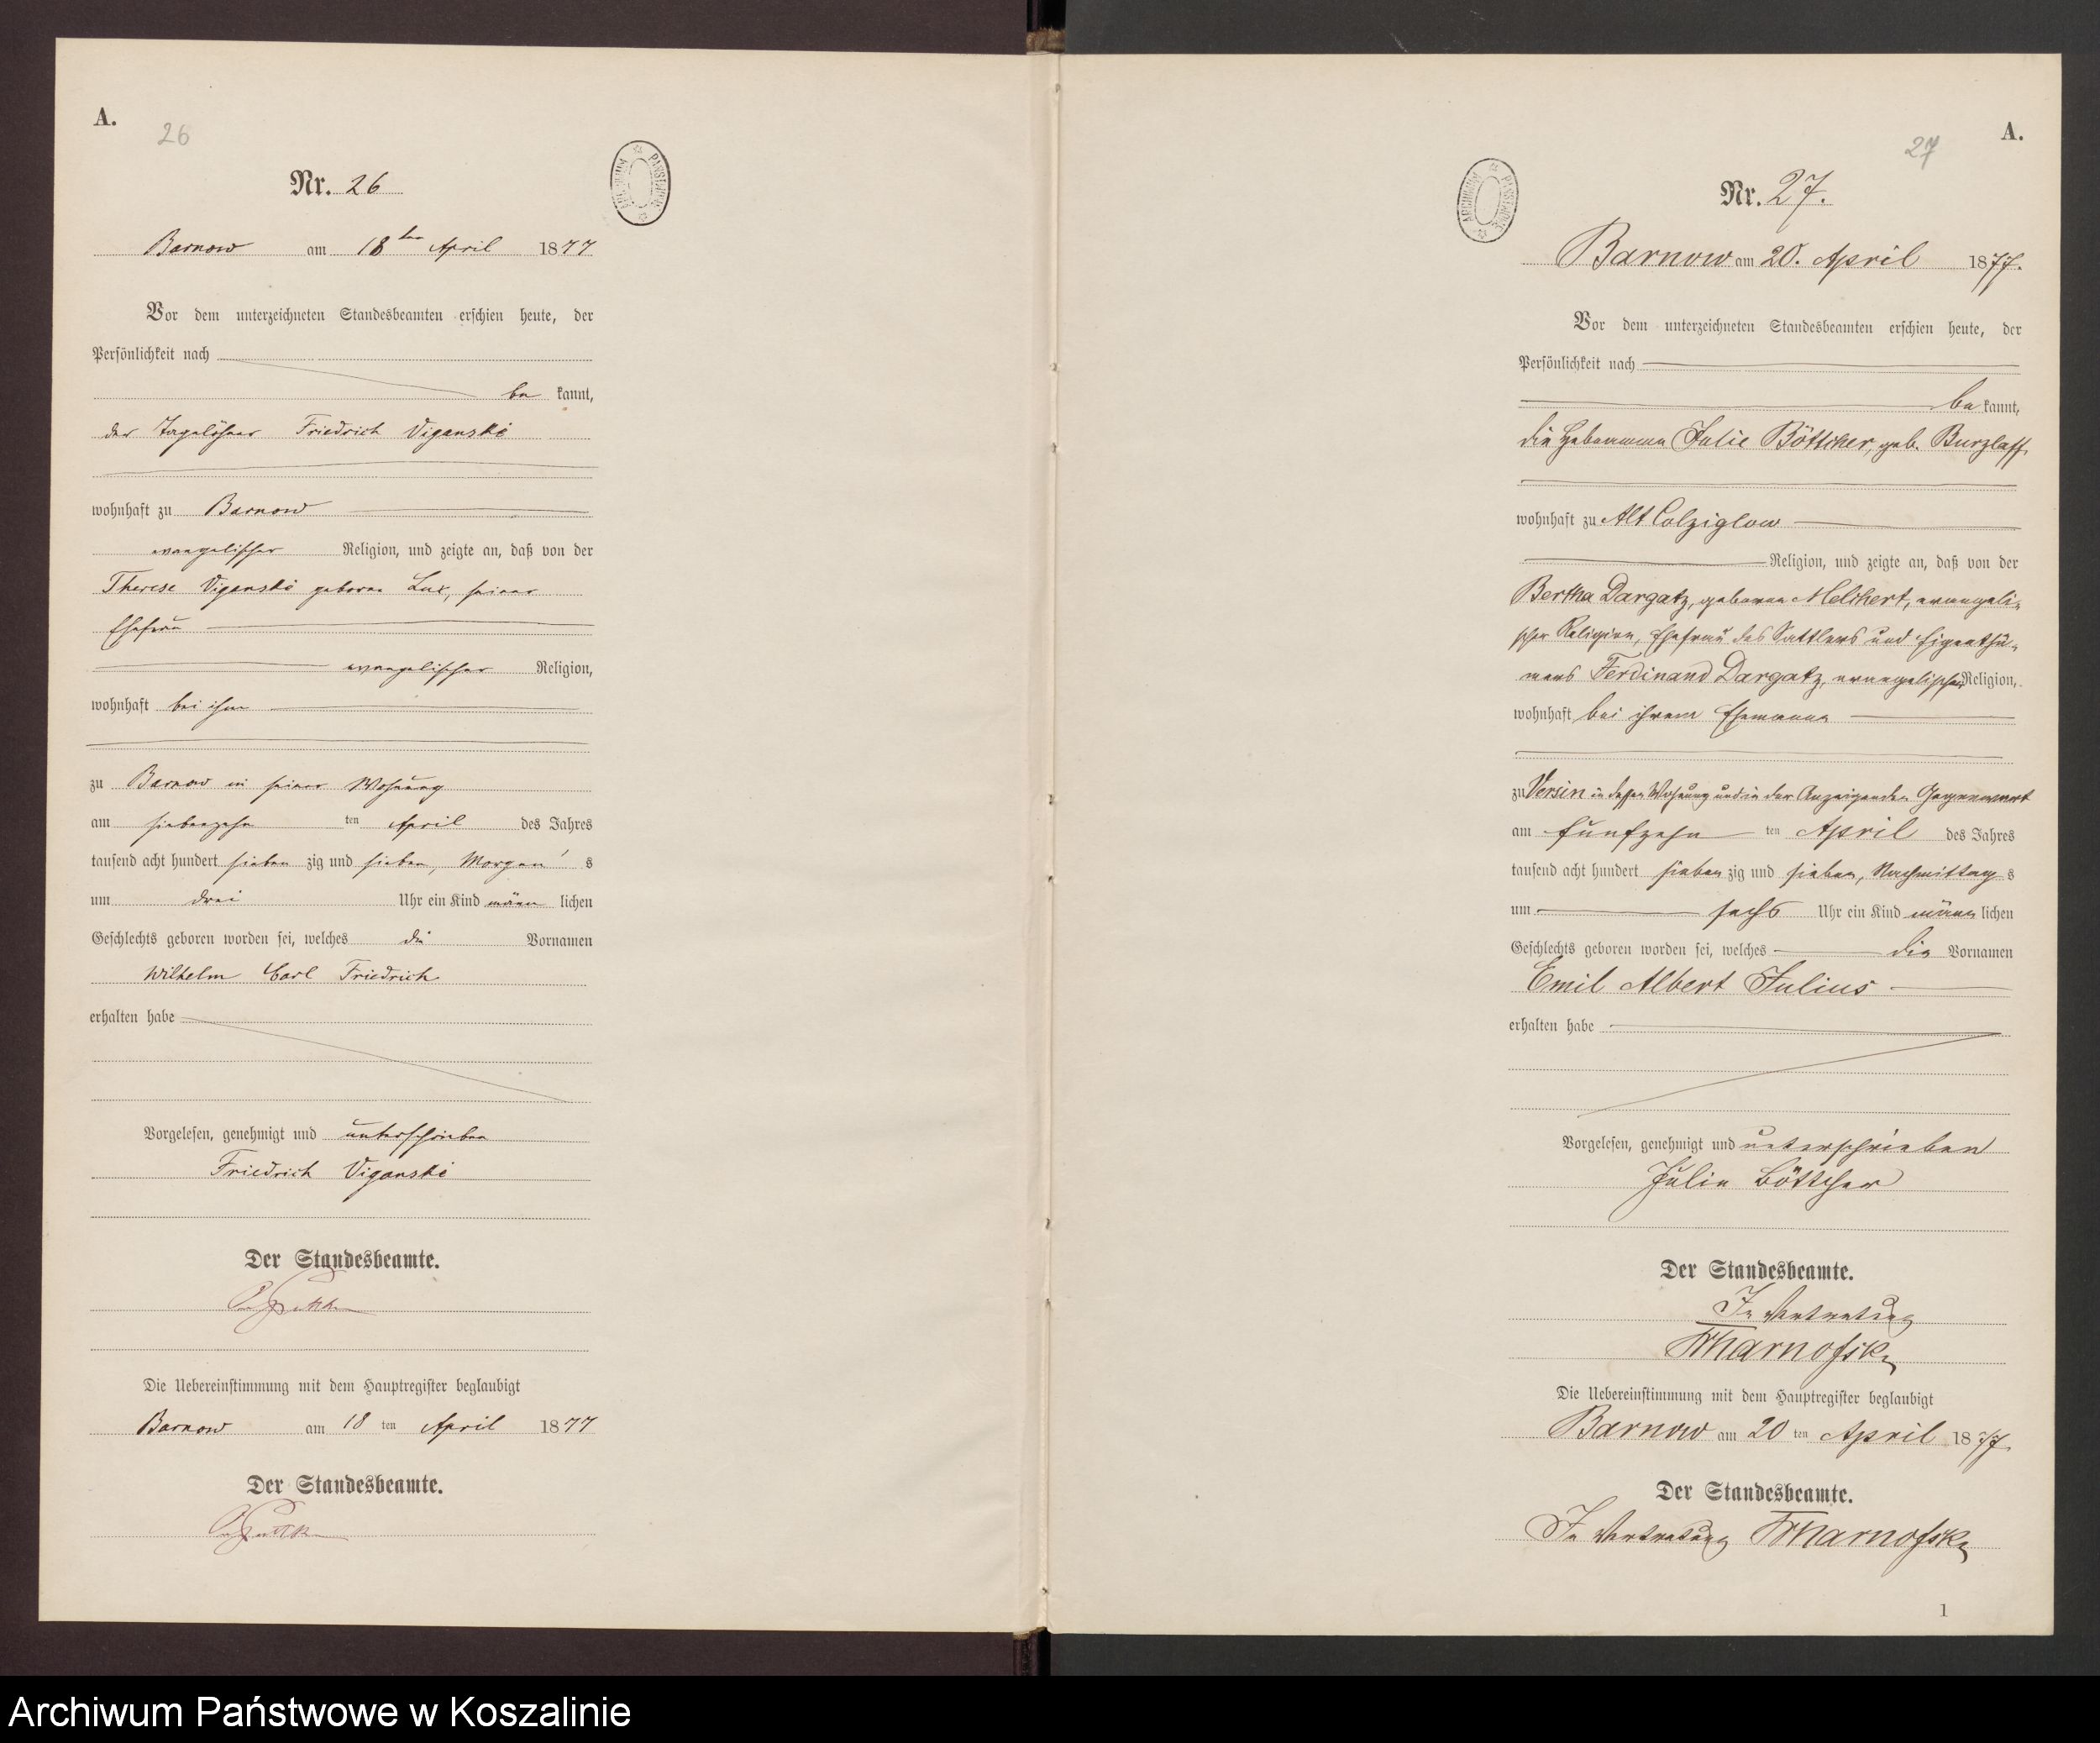 A.
26
Nr. 26
ARCHIWUM PAŃSTWOWE
Barnow am 18ten April 1877
Vor dem unterzeichneten Standesbeamten erschien heute, der
Persönlichkeit nach
be kannt,
der Tagelöhner Friedrich Viganski
wohnhaft zu Barnow
evangelischer Religion, und zeigte an, daß von der
Therese Viganski geborne Lux, seiner
Ehefrau
evangelischer Religion,
wohnhaft bei ihm
zu Barnow in seiner Wohnung
am siebenzehn ten April des Jahres
tausend acht hundert sieben zig und sieben, Morgen s
um drei Uhr ein Kind männ lichen
Geschlechts geboren worden sei, welches die Vornamen
Wilhelm Carl Friedrich
erhalten habe
Vorgelesen, genehmigt und unterschrieben
Friedrich Viganski
Der Standesbeamte.
Die Uebereinstimmung mit dem Hauptregister beglaubigt
Barnow am 18 ten April 1877
Der Standesbeamte.
A.
27
Nr. 27.
ARCHIWUM PAŃSTWOWE
Barnow am 20. April 1877.
Vor dem unterzeichneten Standesbeamten erschien heute, der
Persönlichkeit nach
be kannt,
die Hebeamme Julie Böttcher, geb. Burzlaff,
wohnhaft zu Alt Colziglow
Religion, und zeigte an, daß von der
Bertha Dargatz, geborne Melchert, evangeli-
scher Religion, Ehefrau des Sattlers und Eigenthü-
mers Ferdinand Dargatz, evangelischer Religion,
wohnhaft bei ihrem Ehemanne
zu Versin in dessen Wohnung und in der Anzeigenden Gegenwart
am fünfzehn ten April des Jahres
tausend acht hundert sieben zig und sieben, Nachmittag s
um sechs Uhr ein Kind männ lichen
Geschlechts geboren worden sei, welches die Vornamen
Emil Albert Julius
erhalten habe
Vorgelesen, genehmigt und unterschrieben
Julie Böttcher
Der Standesbeamte.
In Vertretung
Die Uebereinstimmung mit dem Hauptregister beglaubigt
Barnow am 20 ten April 1877.
Der Standesbeamte.
In Vertretung
1
Archiwum Państwowe w Koszalinie